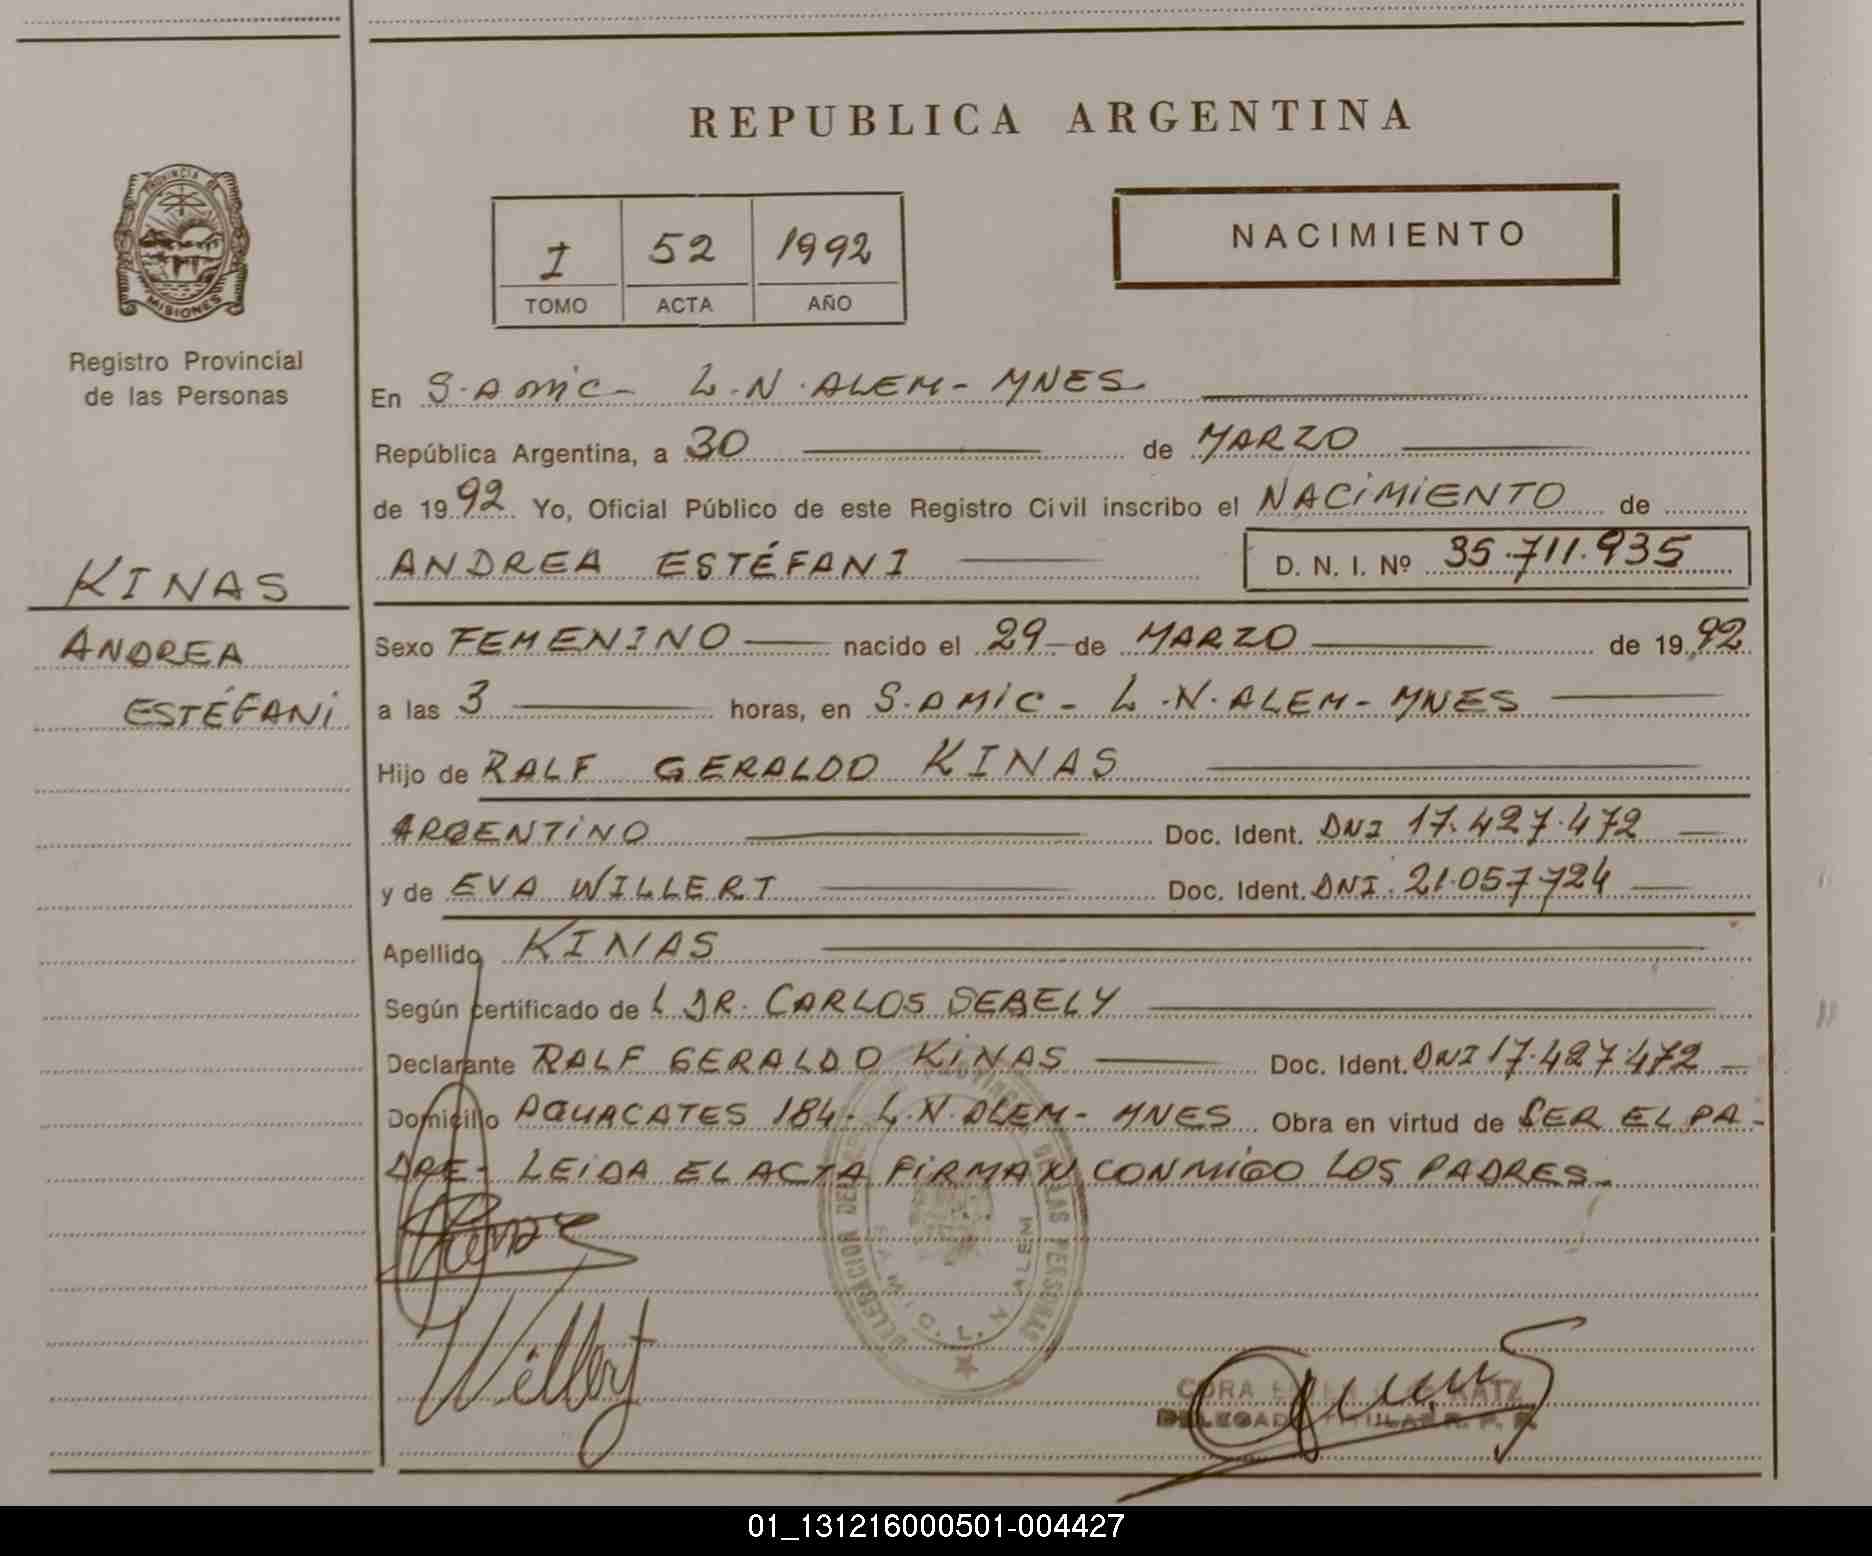 REPUBLICA ARGENTINA
PROVINCIA DE
MISIONES
Registro Provincial
de las Personas
I 52 1992
TOMO ACTA AÑO
NACIMIENTO
En S. AMIC - L.N. ALEM - MNES
República Argentina, a 30 de MARZO
de 1992 Yo, Oficial Público de este Registro Civil inscribo el NACIMIENTO de
ANDREA ESTÉFANI D. N. I. Nº 35.711.935
KINAS
ANDREA
ESTÉFANI
Sexo FEMENINO nacido el 29 de MARZO de 1992
a las 3 horas, en S. AMIC - L.N. ALEM - MNES
Hijo de RALF GERALDO KINAS
ARGENTINO Doc. Ident. DNI 17.427.472
y de EVA WILLERT Doc. Ident. DNI. 21.057724
Apellido KINAS
Según certificado de L DR. CARLOS SEBELY
Declarante RALF GERALDO KINAS Doc. Ident. DNI 17.427.472
Domicilio AGUACATES 184 - L.N. ALEM - MNES Obra en virtud de SER EL PA-
DRE - LEIDA EL ACTA FIRMAN CONMIGO LOS PADRES.
DE LAS PERSONAS
L. N. ALEM
Willert
CORA KATZ
DELEGADA TITULAR R. P. P.
01_131216000501-004427